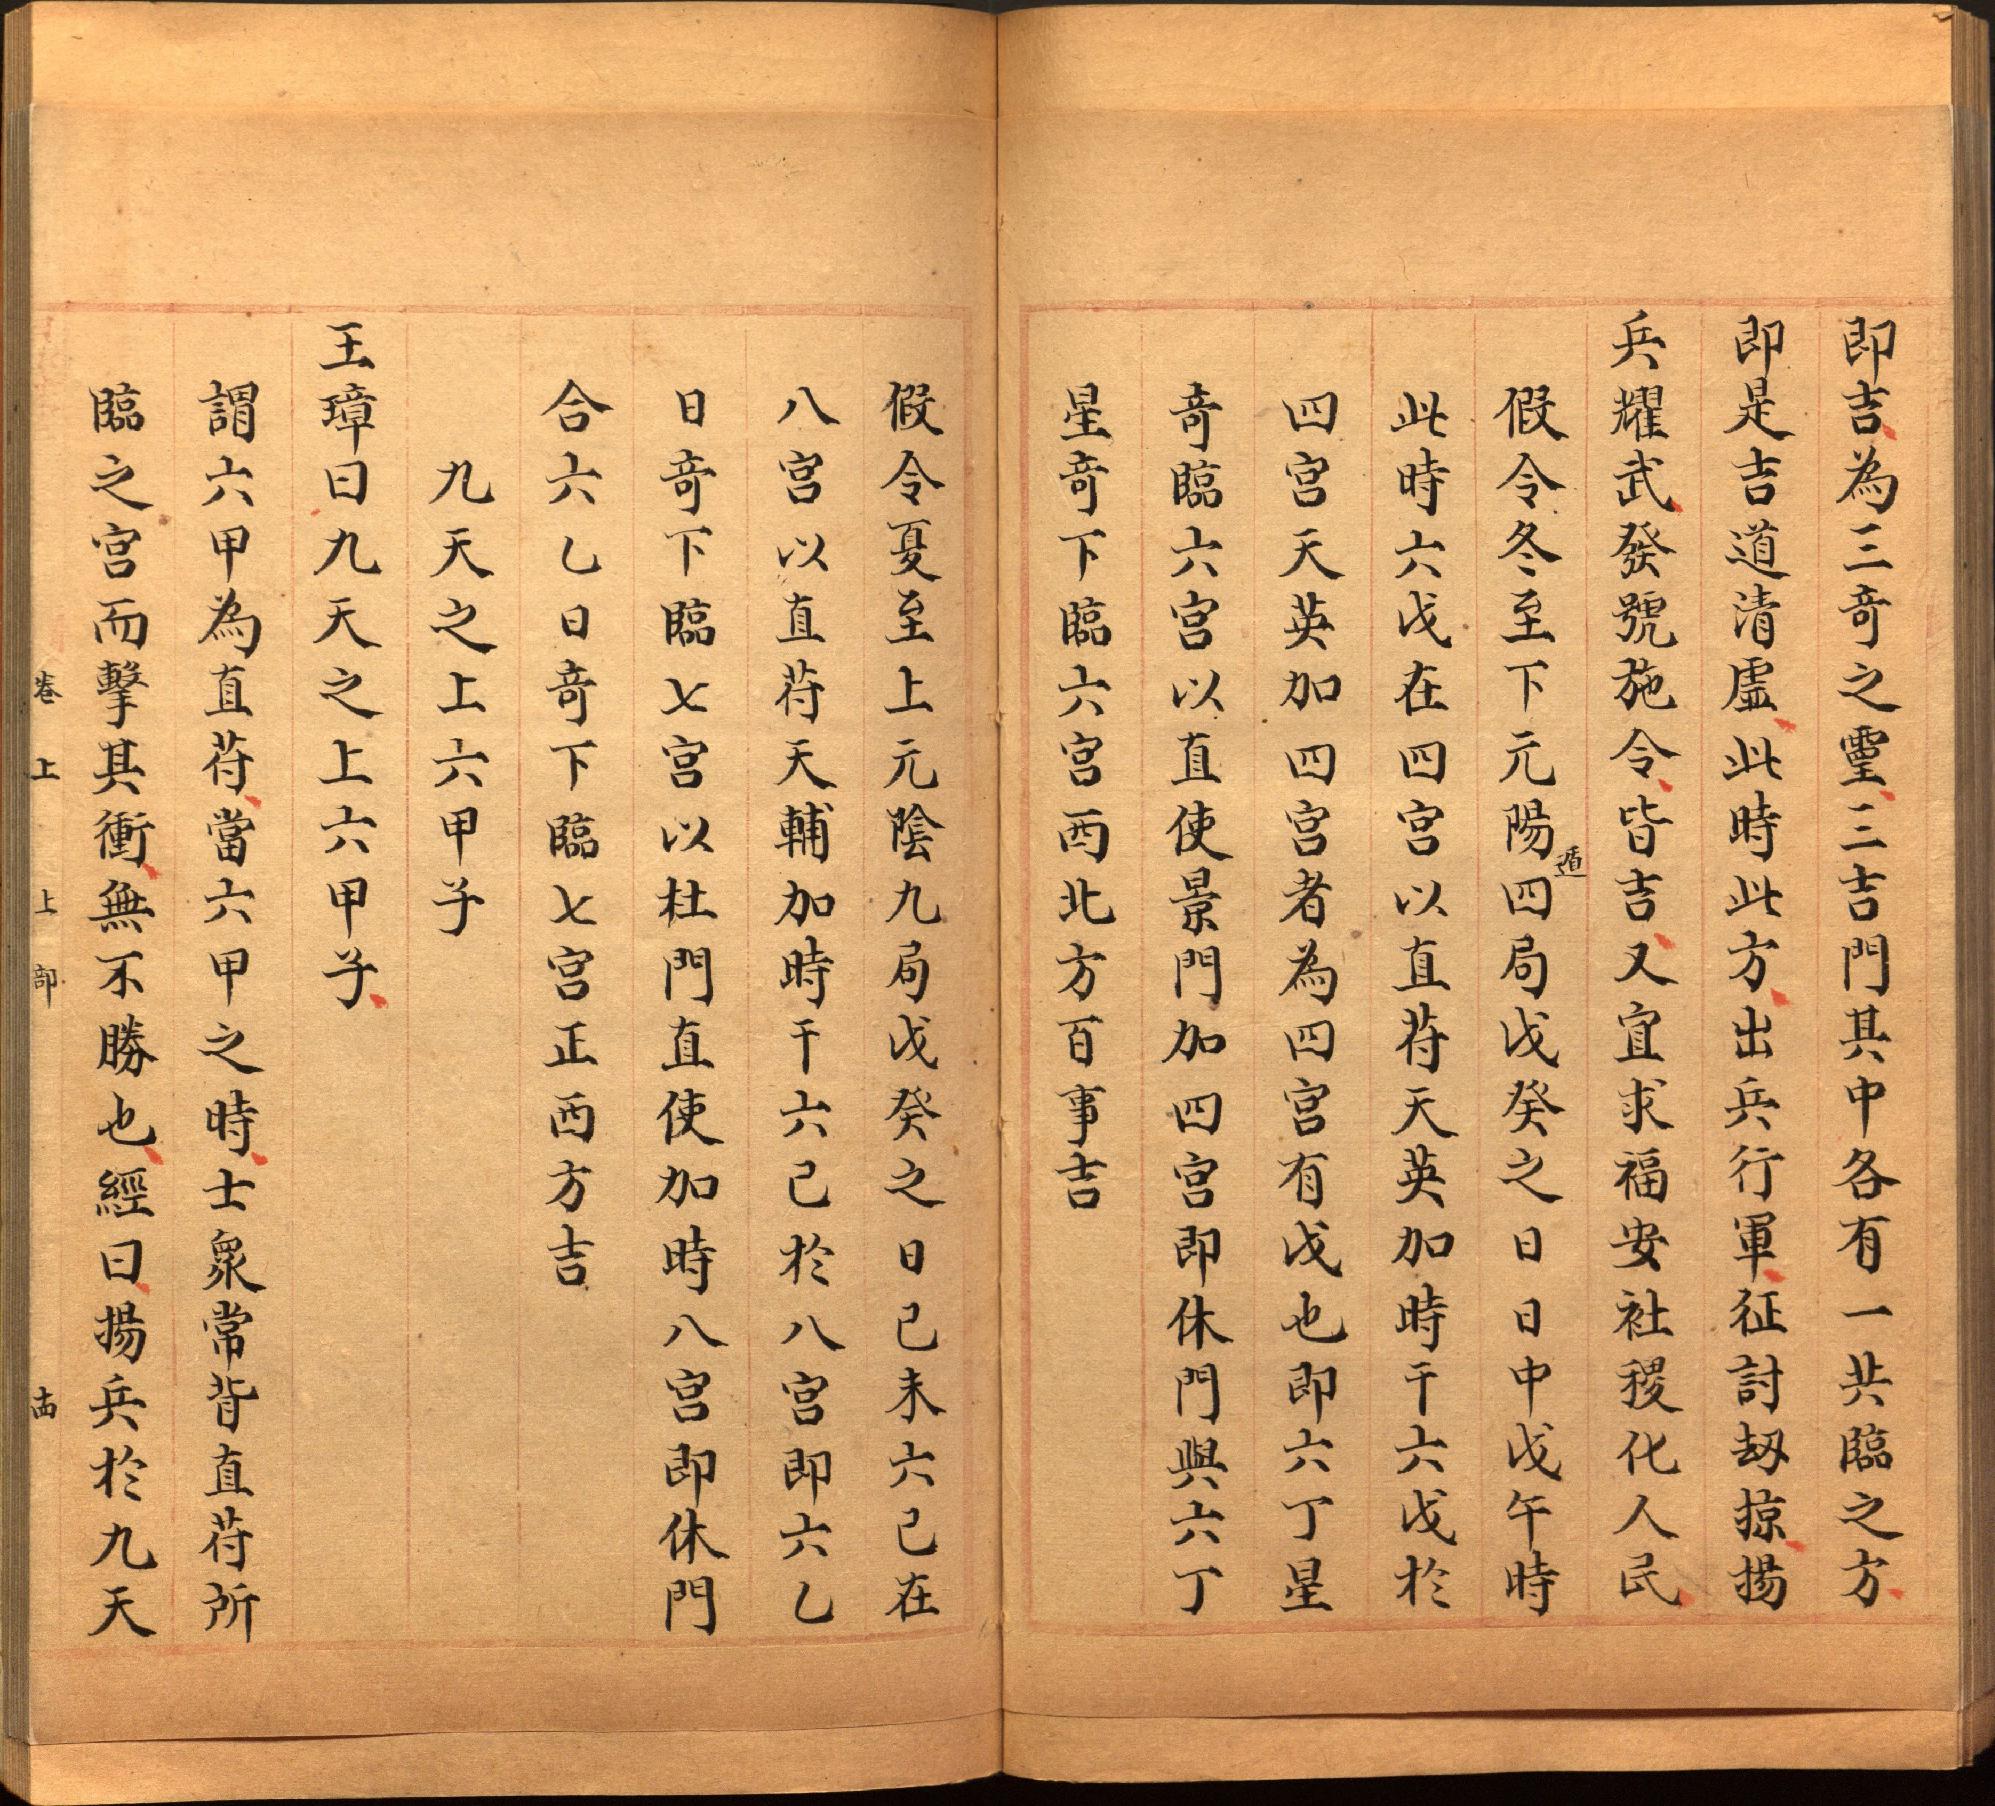 即吉為三竒之靈三吉門其中各有一共臨之方
即是吉道清虛此時此方出兵行軍征討刼掠揚
兵耀武發號施令皆吉又宜求福安社稷化人民
假令冬至下元陽遁四局戊癸之日日中戊午時
此時六戊在四宮以直苻天英加時干六戊於
四宮天英加四宮者為四宮有戊也即六丁星
竒臨六宮以直使景門加四宮即休門與六丁
星竒下臨六宮西北方百事吉
假令夏至上元陰九局戊癸之日己未六己在
八宮以直苻天輔加時干六己於八宮即六乙
日竒下臨七宮以杜門直使加時八宮即休門
合六乙日竒下臨七宮正西方吉
九天之上六甲子
王璋曰九天之上六甲子
謂六甲為直苻當六甲之時士衆常背直苻所
臨之宮而擊其衝無不勝也經曰揚兵於九天
卷上 上部 十四